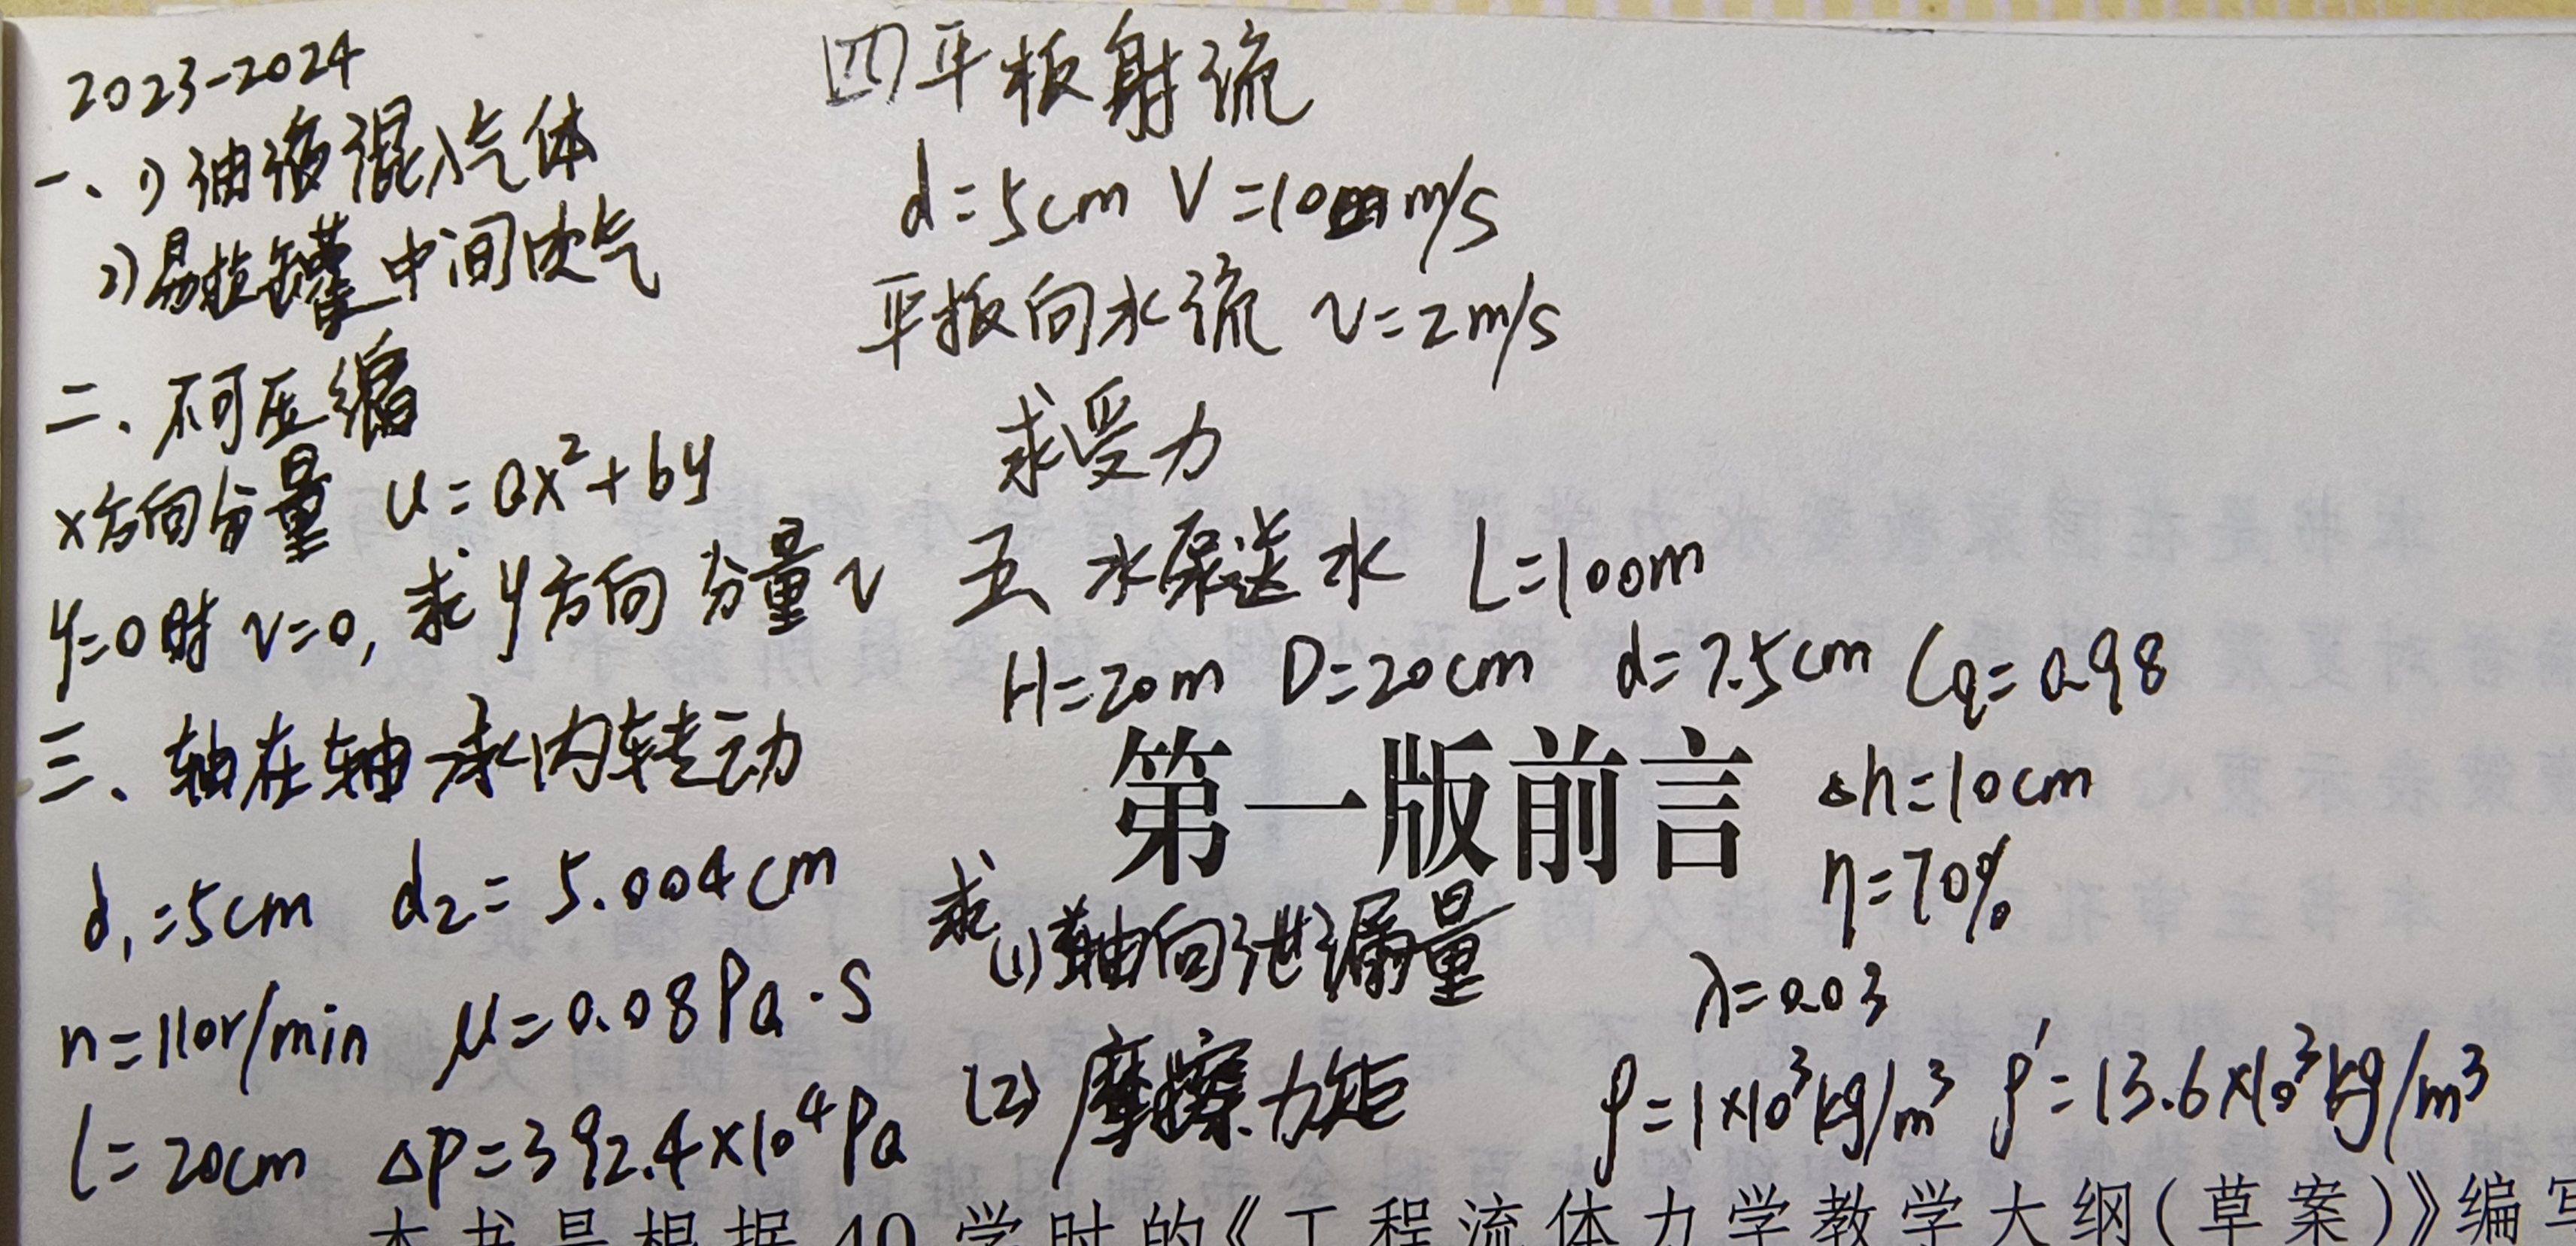 2023-2024
一、1)油液混入气体
2)易拉罐中间吹气
二、不可压缩
x方向分量 u=ax²+by
y=0时 v=0, 求y方向分量v
三、轴在轴承内转动
d₁=5cm d₂=5.004cm
n=110r/min μ=0.08Pa·s
l=20cm Δp=392.4×10⁴Pa
求(1)轴向泄漏量
(2)摩擦力矩
四 平板射流
d=5cm V=10m/s
平板向水流 v=2m/s
求受力
五 水泵送水 L=100m
H=20m D=20cm d=7.5cm Cq=0.98
Δh=10cm
η=70%
λ=0.03
ρ=1×10³kg/m³ ρ'=13.6×10³kg/m³
第一版前言
本书是根据40学时的《工程流体力学教学大纲(草案)》编写